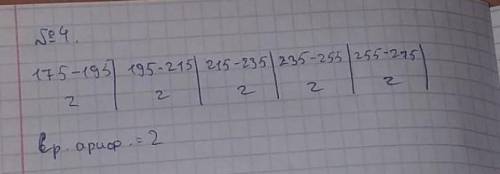 №4.
175-195 | 195-215 | 215-235 | 235-255 | 255-275
2 | 2 | 2 | 2 | 2
вр. ариф. = 2